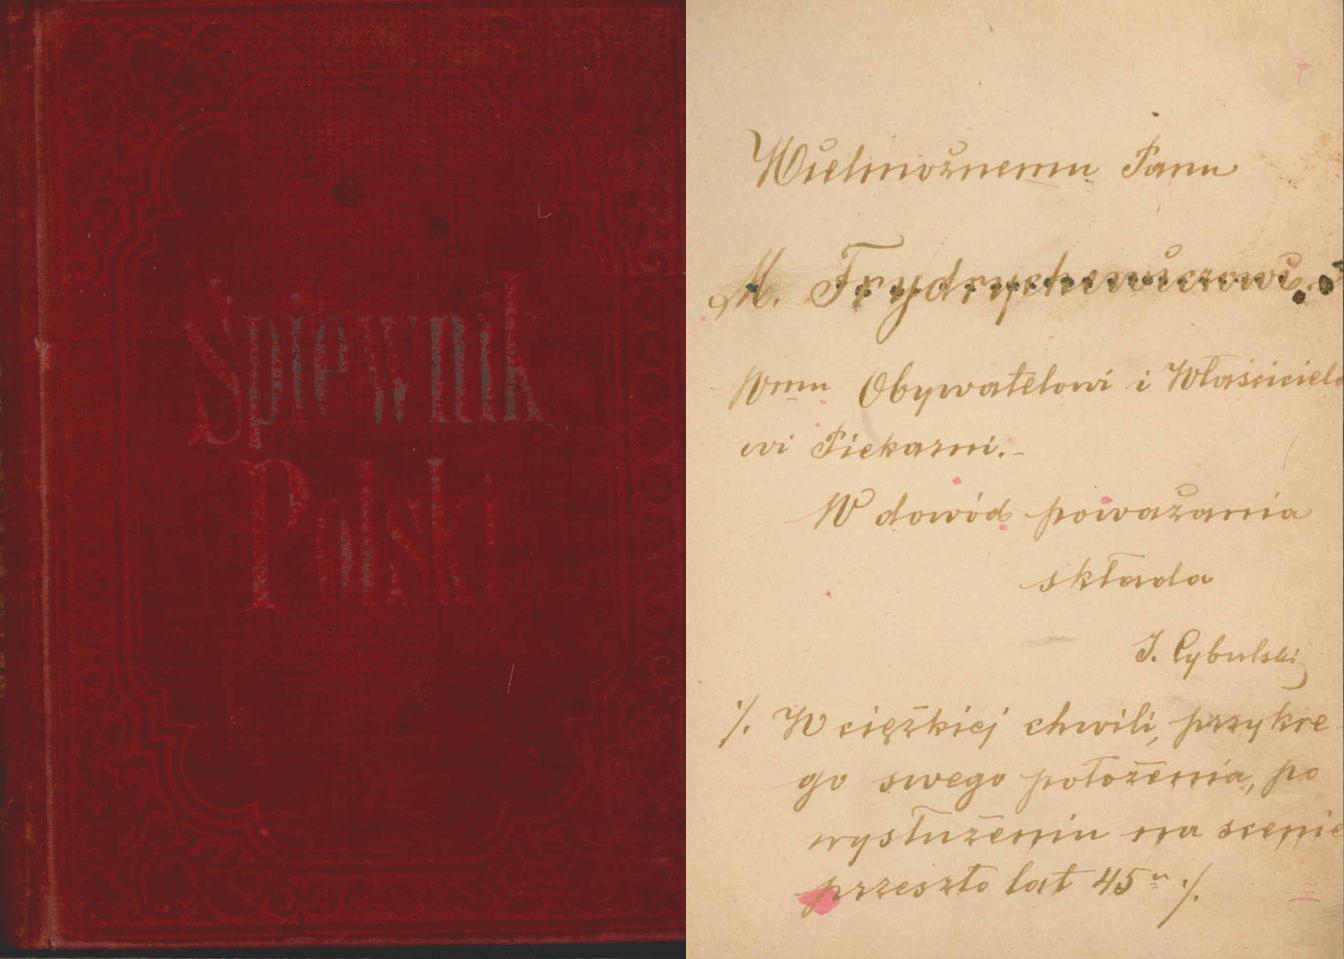 Śpiewnik
Polski
Wielmożnemu Panu
M. Frydrychewiczowi
Wmu Obywatelowi i Właściciela
wi Piekarni.-
W dowód poważania
składa
J. Cybulski
/. W ciężkiej chwili, przykre-
go swego położenia, po
wysłużeniu na scenie
przeszło lat 45u ./.